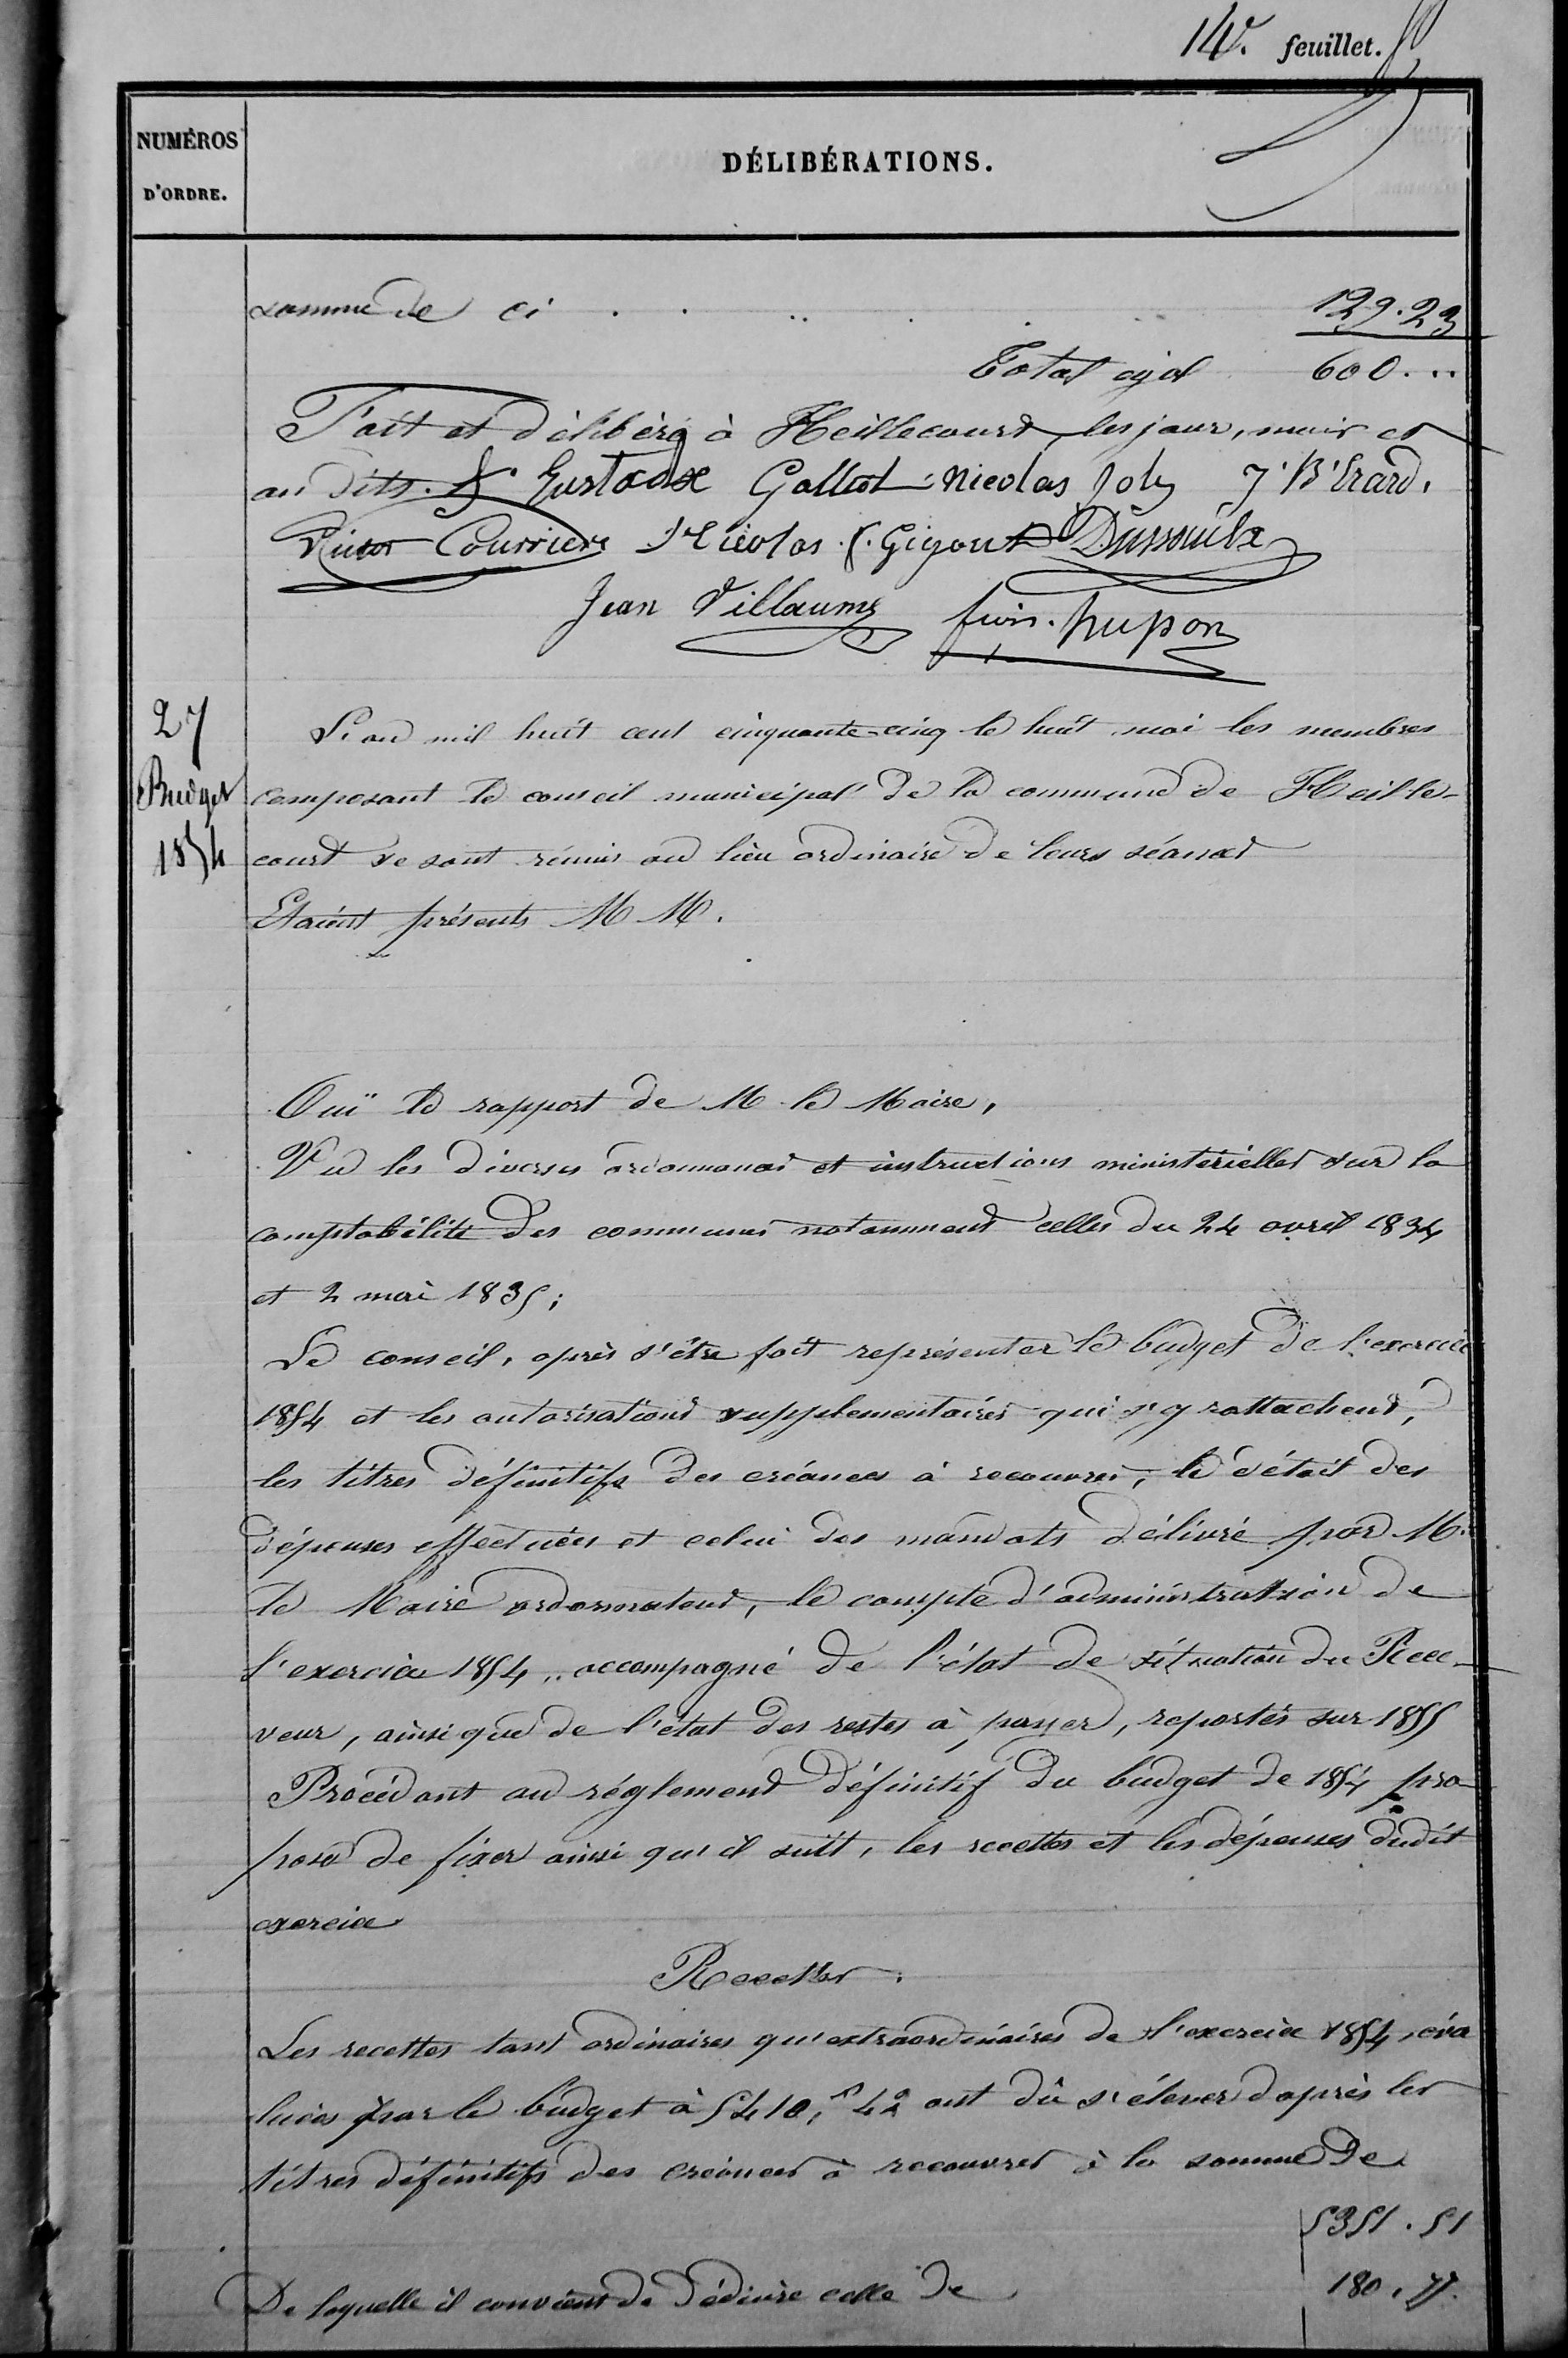 14e. feuillet.
NUMÉROS
D'ORDRE.
DÉLIBÉRATIONS.
somme de ci . . . . . . 129.23
Total égal 600...
Fait et délibéré à Heillecourt, les jour, mois et
an dits. Galliot Nicolas Joly J. B. Erard.
Victor Courrier Nicolas Gigout Dussaulx
Jean Villaume
27
Budget
1854
L'an mil huit cent cinquante-cinq le huit mai les membres
composant le conseil municipal de la commune de Heille-
court se sont réunis au lieu ordinaire de leurs séances
Etaient présents MM.
Ouï le rapport de M le Maire,
Vu les diverses ordonnances et instructions ministérielles sur la
comptabilité des communes notamment celles du 24 avril 1834
et 2 mai 1835;
Le conseil, après s'être fait représenter le budget de l'exercice
1854 et les autorisations supplementaires qui s'y rattachent,
les titres définitifs des créances à recouvrer, le détail des
dépenses effectuées et celui des mandats délivré par M.
le Maire ordonnateur, le compte d'administration de
l'exercice 1854, accompagné de l'état de situation du Rece-
veur, ainsi que de l'état des restes à payer, reportés sur 1855
Procédant au réglement définitif du budget de 1854 pro
pose de fixer ainsi qu'il suit, les recettes et les dépenses dudit
exercice
Recettes.
Les recettes tant ordinaires qu'extraordinaires de l'exercice 1854, éva
luées par le budget à 5410,f 42 ont dû s'élever d'après les
titres définitifs des créances à recouvrer à la somme de
5351.51
De laquelle il convient de déduire celle de 180,77.